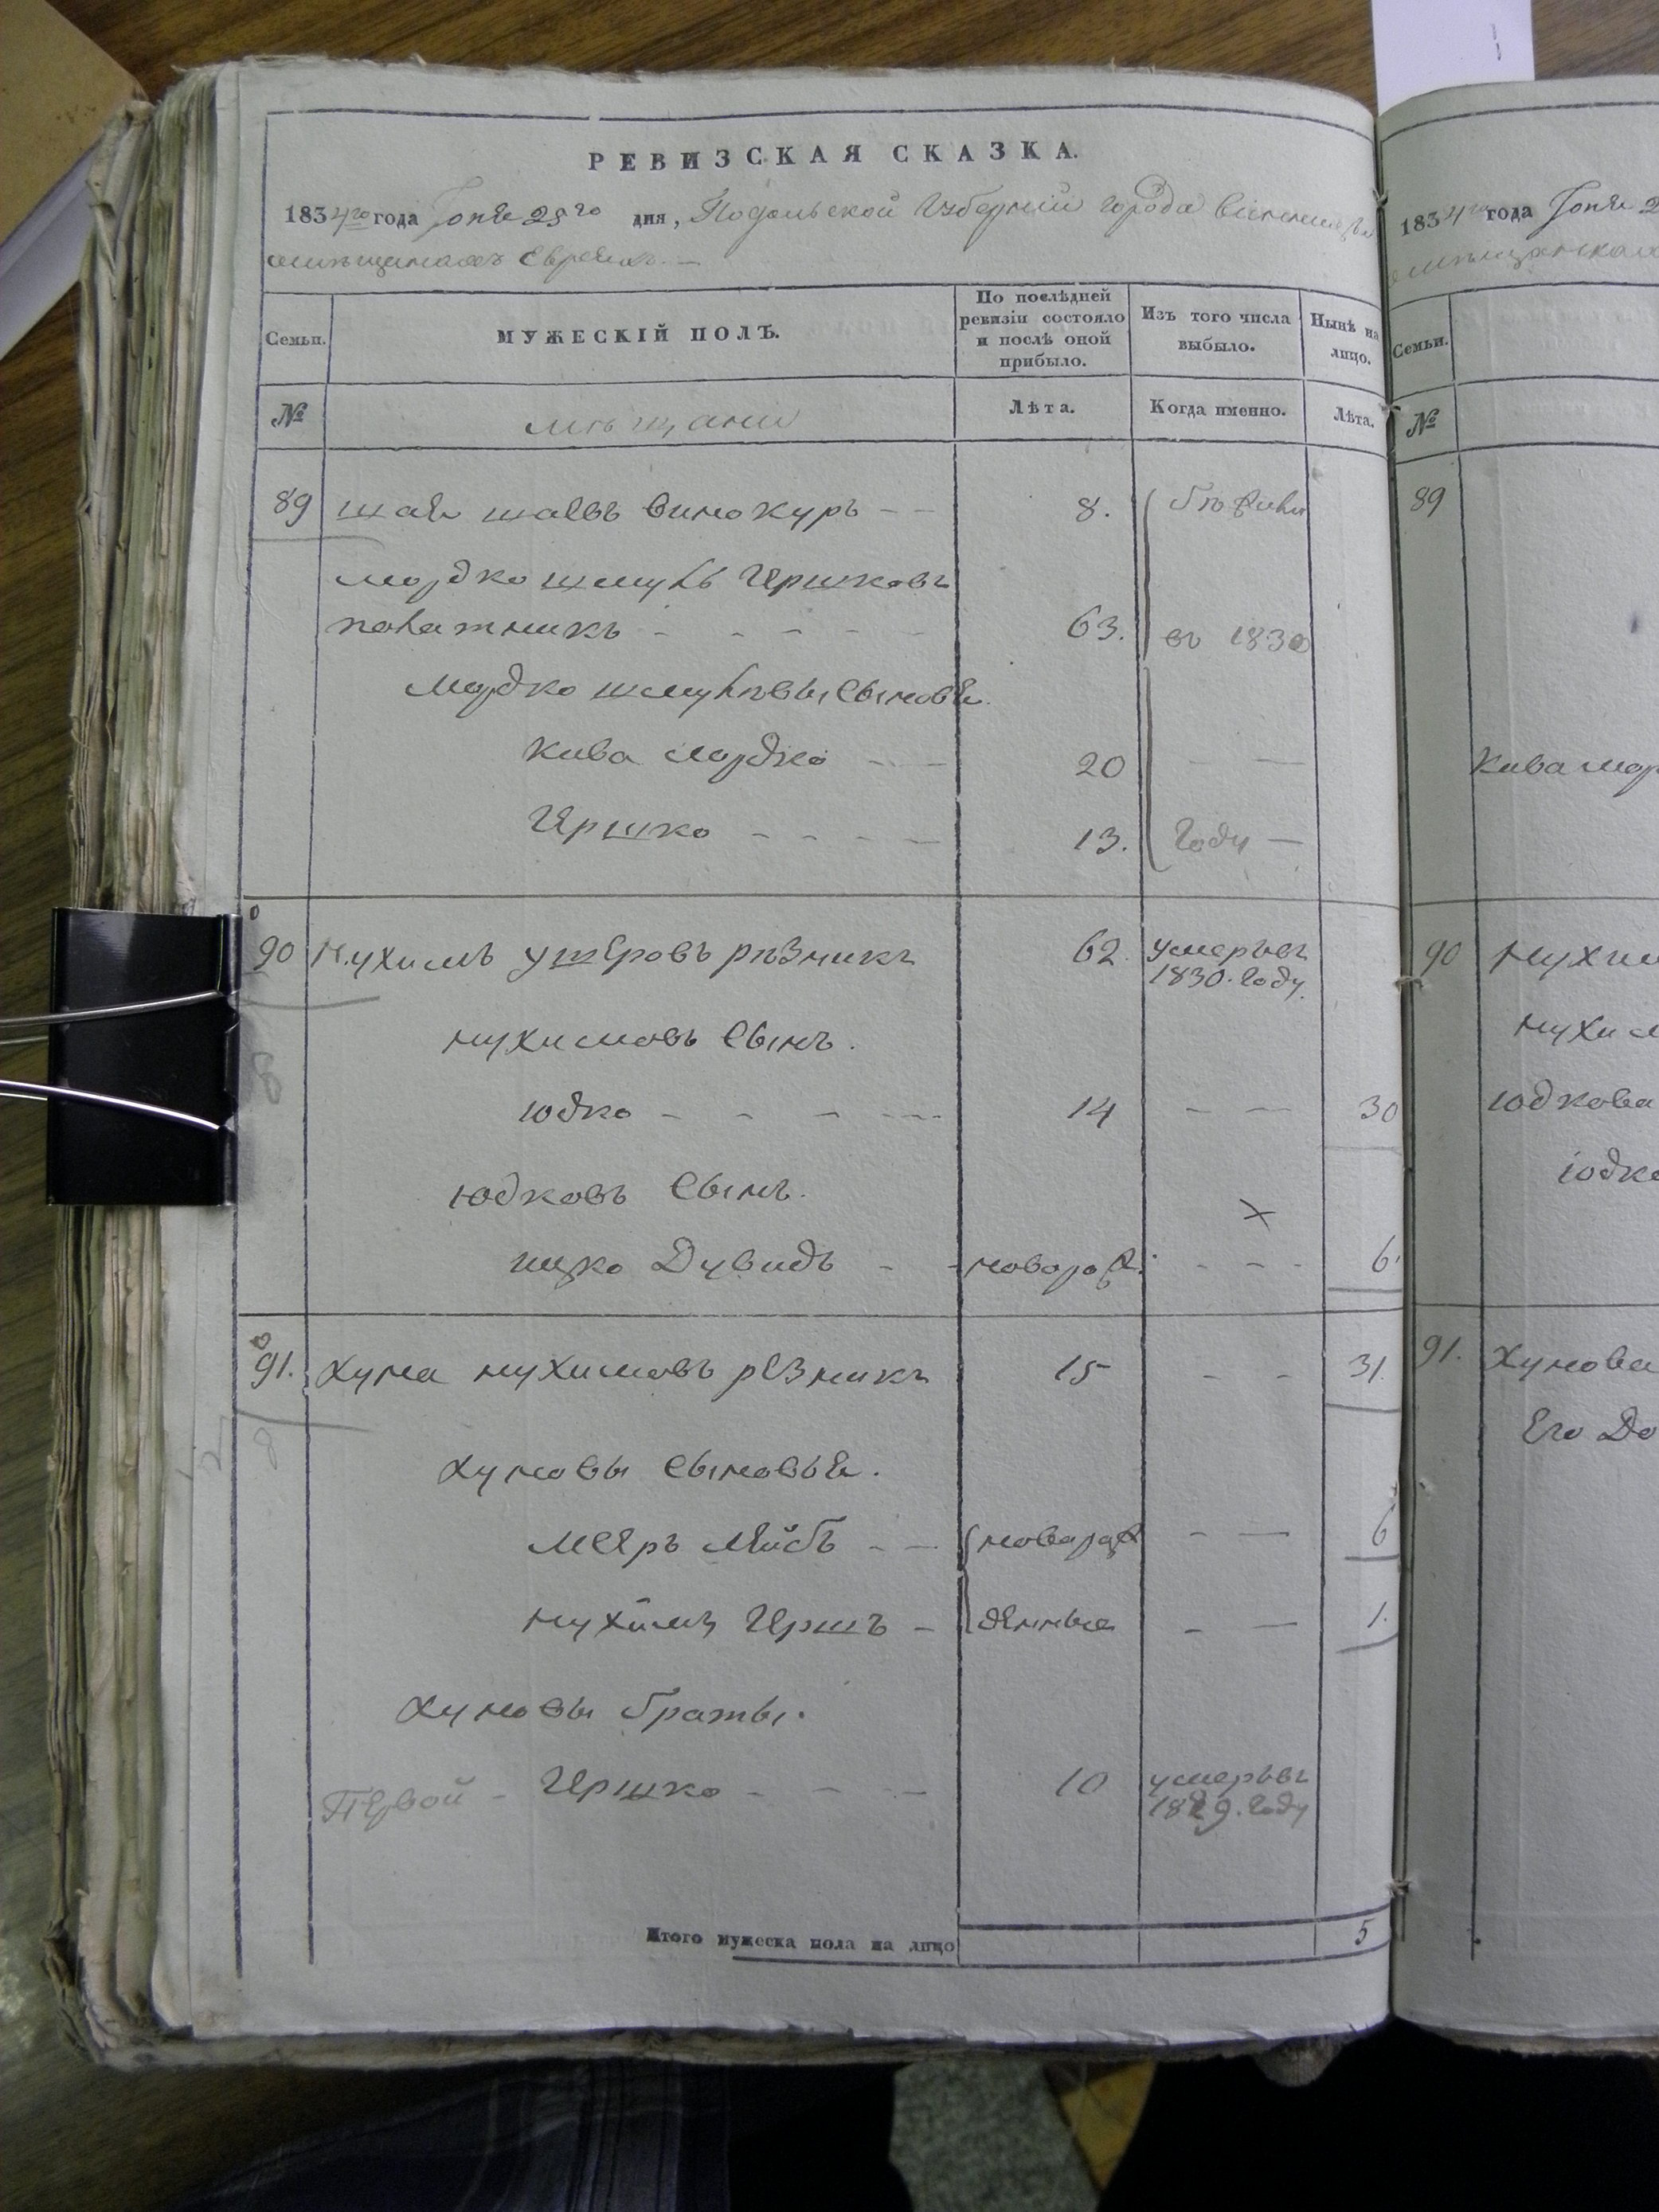 РЕВИЗСКАЯ СКАЗКА.
1834го года Іюня 25го дня, Подольской Губерніи города Винницы
мѣщинахъ Евреяхъ. —
Семьи.
МУЖЕСКІЙ ПОЛЪ.
По послѣдней ревизіи состояло и послѣ оной прибыло.
Изъ того числа выбыло.
Нынѣ на лицо.
№
мѣщани
Лѣта.
Когда именно.
Лѣта.
89 шая шаевъ винокуръ - - 8.
Мордко шмуль Гершковъ
- - - - - 63. въ 1830
Мордко шмулевы сыновья
Кива мордко - - 20 - -
Гершко - - - - 13. Году —
90 Нухимъ ушеровъ рѣзникъ 62. умеръ въ 1830. Году.
нухимовъ сынъ.
юдко - - - - 14 - - 30
юдковъ сынъ.
ицко Дувидъ - - новорож. - - - 6.
91. Хуна нухимовъ рѣзникъ 15 - - 31.
Хуновы сыновья.
меяръ лейбъ - - новорож - — 6
нухимъ Гершъ - денные - — 1.
Хуновы браты.
Первой - Гершко - - - 10 умеръ въ 1829. Году
Итого мужеска пола на лицо 5
1834го года Іюня 2
Семьи.
№
89
Кива мор
90 Нухим
нухим
юдкова
юдко
91. Хунова
Его До